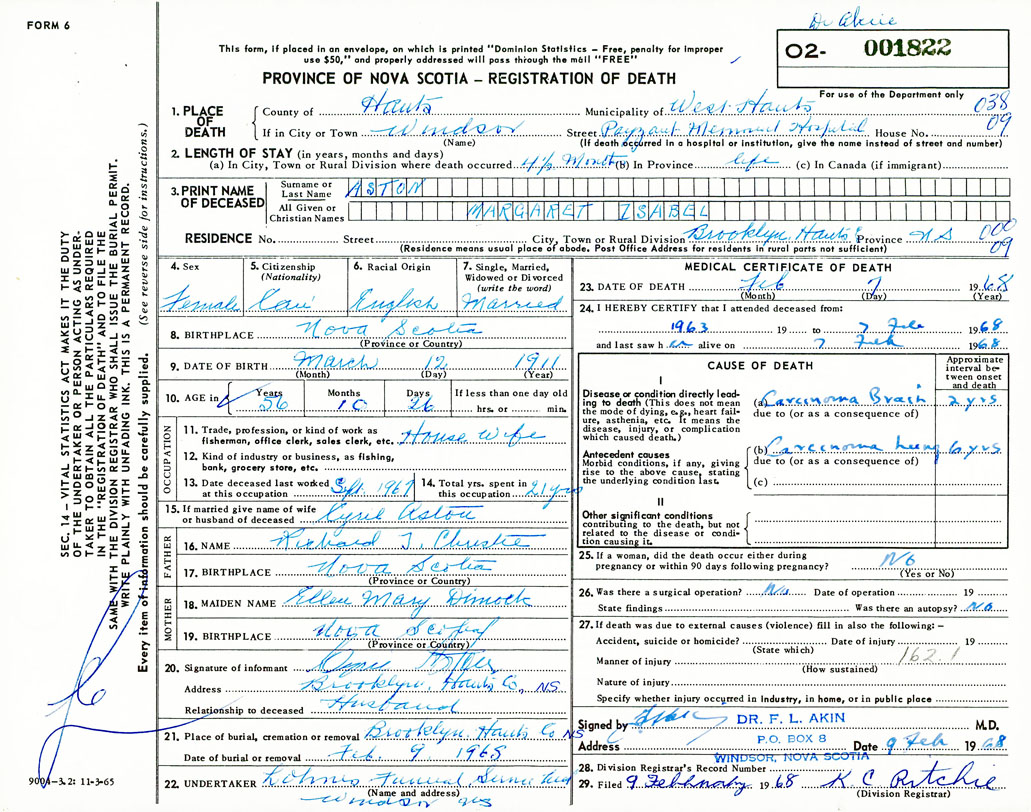 FORM 6
Dr Akin
This form, if placed in an envelope, on which is printed "Dominion Statistics – Free, penalty for improper
use $50," and properly addressed will pass through the mail "FREE"
02- 001822
For use of the Department only
PROVINCE OF NOVA SCOTIA – REGISTRATION OF DEATH
SEC. 14 – VITAL STATISTICS ACT MAKES IT THE DUTY
OF THE UNDERTAKER OR PERSON ACTING AS UNDER-
TAKER TO OBTAIN ALL THE PARTICULARS REQUIRED
IN THE "REGISTRATION OF DEATH" AND TO FILE THE
SAME WITH THE DIVISION REGISTRAR WHO SHALL ISSUE THE BURIAL PERMIT.
WRITE PLAINLY WITH UNFADING INK. THIS IS A PERMANENT RECORD.
Every item of information should be carefully supplied. (See reverse side for instructions.)
1. PLACE OF DEATH
County of Hants Municipality of West Hants 038
If in City or Town Windsor Street Payzant Memorial Hospital House No. 09
(Name) (If death occurred in a hospital or institution, give the name instead of street and number)
2. LENGTH OF STAY (in years, months and days)
(a) In City, Town or Rural Division where death occurred 4½ Month (b) In Province life (c) In Canada (if immigrant)
3. PRINT NAME OF DECEASED
Surname or Last Name ASTON
All Given or Christian Names MARGARET ISABEL
RESIDENCE No. Street City, Town or Rural Division Brooklyn, Hants Province NS 000
(Residence means usual place of abode. Post Office Address for residents in rural parts not sufficient) 09
4. Sex Female
5. Citizenship (Nationality) Can
6. Racial Origin English
7. Single, Married, Widowed or Divorced (write the word) Married
8. BIRTHPLACE Nova Scotia
(Province or Country)
9. DATE OF BIRTH March 12 1911
(Month) (Day) (Year)
10. AGE in Years 56 Months 10 Days 26 If less than one day old
hrs. or min.
OCCUPATION
11. Trade, profession, or kind of work as
fisherman, office clerk, sales clerk, etc. House Wife
12. Kind of industry or business, as fishing,
bank, grocery store, etc.
13. Date deceased last worked at this occupation Sept. 1967
14. Total yrs. spent in this occupation 21 yrs
15. If married give name of wife
or husband of deceased Cyril Aston
FATHER
16. NAME Richard J. Christie
17. BIRTHPLACE Nova Scotia
(Province or Country)
MOTHER
18. MAIDEN NAME Ellen Mary Dimock
19. BIRTHPLACE Nova Scotia
(Province or Country)
20. Signature of informant
Address Brooklyn, Hants Co, NS
Relationship to deceased Husband
21. Place of burial, cremation or removal Brooklyn, Hants Co NS
Date of burial or removal Feb. 9 1968
22. UNDERTAKER Funeral
(Name and address)
Windsor NS
9004-3.2: 11-3-65
MEDICAL CERTIFICATE OF DEATH
23. DATE OF DEATH Feb 7 1968
(Month) (Day) (Year)
24. I HEREBY CERTIFY that I attended deceased from:
1963 19 to 7 Feb 1968
and last saw her alive on 7 Feb 1968
CAUSE OF DEATH
Approximate interval between onset and death
I
Disease or condition directly lead-
ing to death (This does not mean
the mode of dying, e.g., heart fail-
ure, asthenia, etc. It means the
disease, injury, or complication
which caused death.)
(a) Carcinoma Brain 2 yrs
due to (or as a consequence of)
Antecedent causes
Morbid conditions, if any, giving
rise to the above cause, stating
the underlying condition last.
(b) Carcinoma Lung 6 yrs
due to (or as a consequence of)
(c)
II
Other significant conditions
contributing to the death, but not
related to the disease or condi-
tion causing it.
25. If a woman, did the death occur either during
pregnancy or within 90 days following pregnancy? No
(Yes or No)
26. Was there a surgical operation? No Date of operation 19
State findings Was there an autopsy? No
27. If death was due to external causes (violence) fill in also the following: –
Accident, suicide or homicide? Date of injury 19
(State which)
162.1
Manner of injury
(How sustained)
Nature of injury
Specify whether injury occurred in Industry, in home, or in public place
Signed by DR. F. L. AKIN M.D.
P.O. BOX 8
Address Date 9 Feb 1968
WINDSOR, NOVA SCOTIA
28. Division Registrar's Record Number
29. Filed 9 February 1968 K C Ritchie
(Division Registrar)